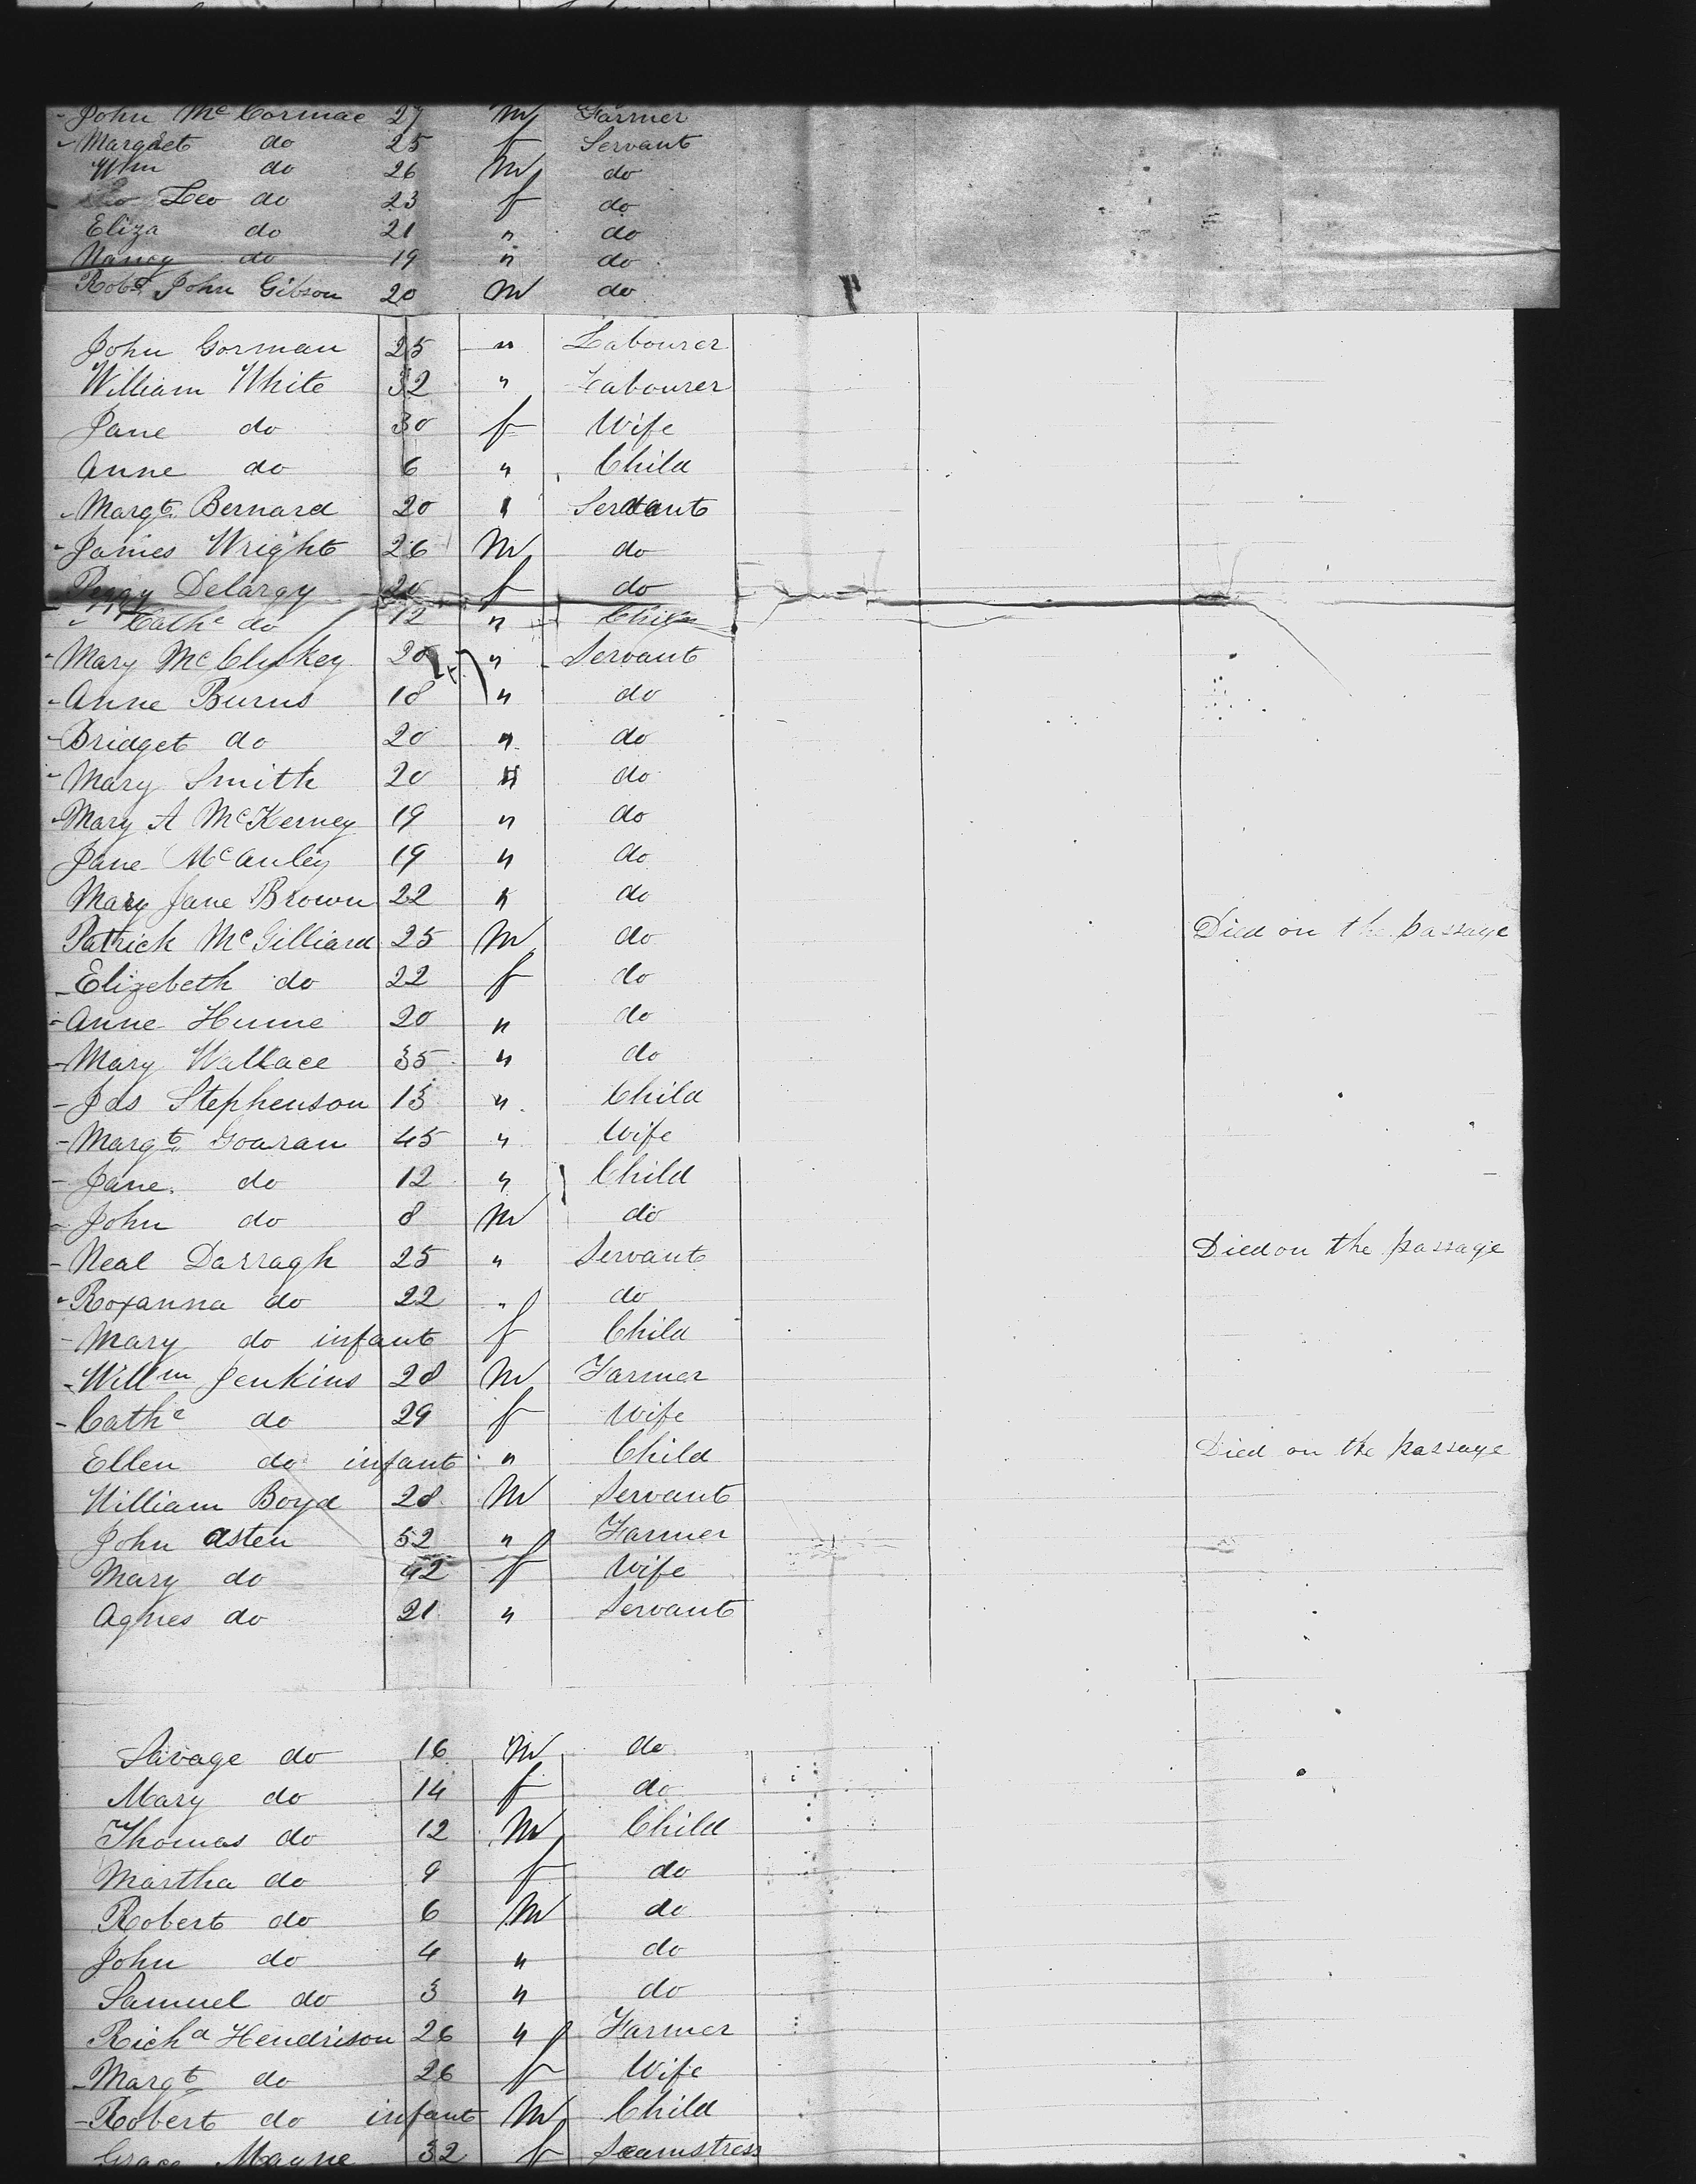 John McCormac 27 M Farmer
Margaret do 25 f Servant
Wm do 26 M do
Leo do 23 f do
Eliza do 21 " do
Nancy do 19 " do
Robt John Gibson 20 M do
John Gorman 25 " Labourer
William White 32 " Labourer
Jane do 30 f Wife
Anne do 6 " Child
Margt Bernard 20 " Servant
James Wright 26 M do
Peggy Delargy 20 f do
Cathe do 12 " Child
Mary McClyskey 20 " Servant
Anne Burns 18 " do
Bridget do 20 " do
Mary Smith 20 " do
Mary A McKerney 19 " do
Jane McAuley 19 " do
Mary Jane Brown 22 " do
Patrick McGilliard 25 M do Died on the passage
Elizebeth do 22 f do
Anne Hume 20 " do
Mary Wallace 35 " do
Jas Stephenson 13 " Child
Margt Gouran 45 " Wife
Jane do 12 " Child
John do 8 M do
Neal Darragh 25 " Servant Died on the passage
Roxanna do 22 " do
Mary do infant f Child
Willm Jenkins 28 M Farmer
Cathe do 29 f Wife
Ellen do infant " Child Died on the passage
William Boyd 28 M Servant
John Asten 52 " Farmer
Mary do 42 f Wife
Agnes do 21 " Servant
Savage do 16 M do
Mary do 14 f do
Thomas do 12 M Child
Martha do 9 f do
Robert do 6 M do
John do 4 " do
Samuel do 3 " do
Richd Hendrison 26 " Farmer
Margt do 26 f Wife
Robert do infant M Child
Grace Mayne 32 f Seamstress